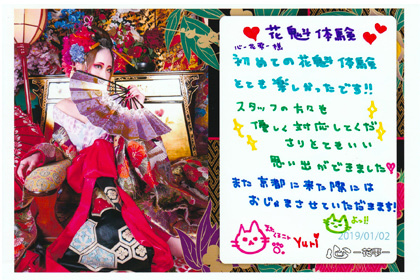 花魁体験
心-花雫-様
初めての花魁体験
とても楽しかったです!!
スタッフの方々も
優しく対応してくだ
さりとてもいい
思い出ができました
また京都に来た際には
おじゃまさせていただきます!
また
くるニャ
Yuri
よっ!!
2019/01/02
心-花雫-